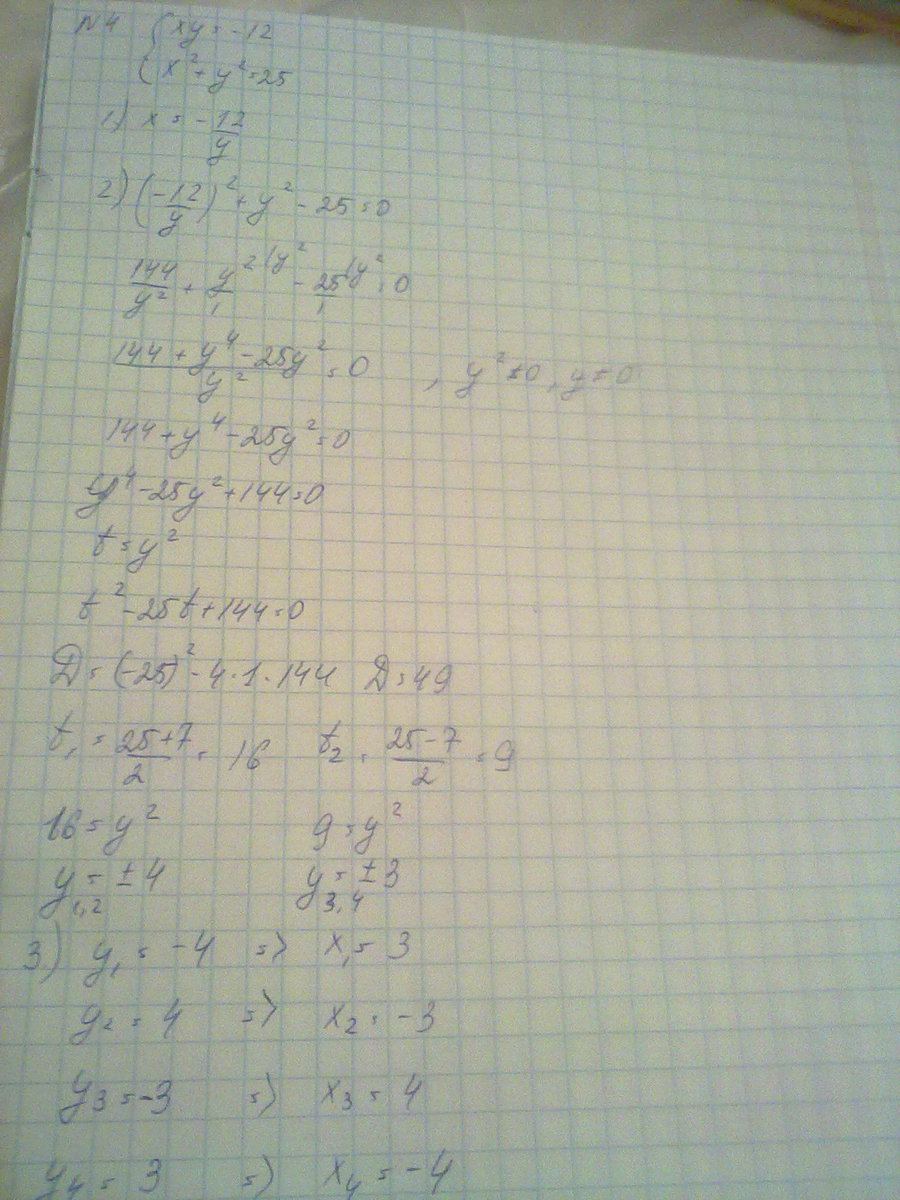 N4 { xy = -12
{ x² + y² = 25
1) x = -12/y
2) (-12/y)² + y² - 25 = 0
144/y² + y²/1 |y² - 25/1 |y² = 0
(144 + y⁴ - 25y²)/y² = 0 , y² ≠ 0, y ≠ 0
144 + y⁴ - 25y² = 0
y⁴ - 25y² + 144 = 0
t = y²
t² - 25t + 144 = 0
D = (-25)² - 4·1·144 D = 49
t₁ = (25+7)/2 = 16 t₂ = (25-7)/2 = 9
16 = y² 9 = y²
y₁,₂ = ±4 y₃,₄ = ±3
3) y₁ = -4 => x₁ = 3
y₂ = 4 => x₂ = -3
y₃ = -3 => x₃ = 4
y₄ = 3 => x₄ = -4